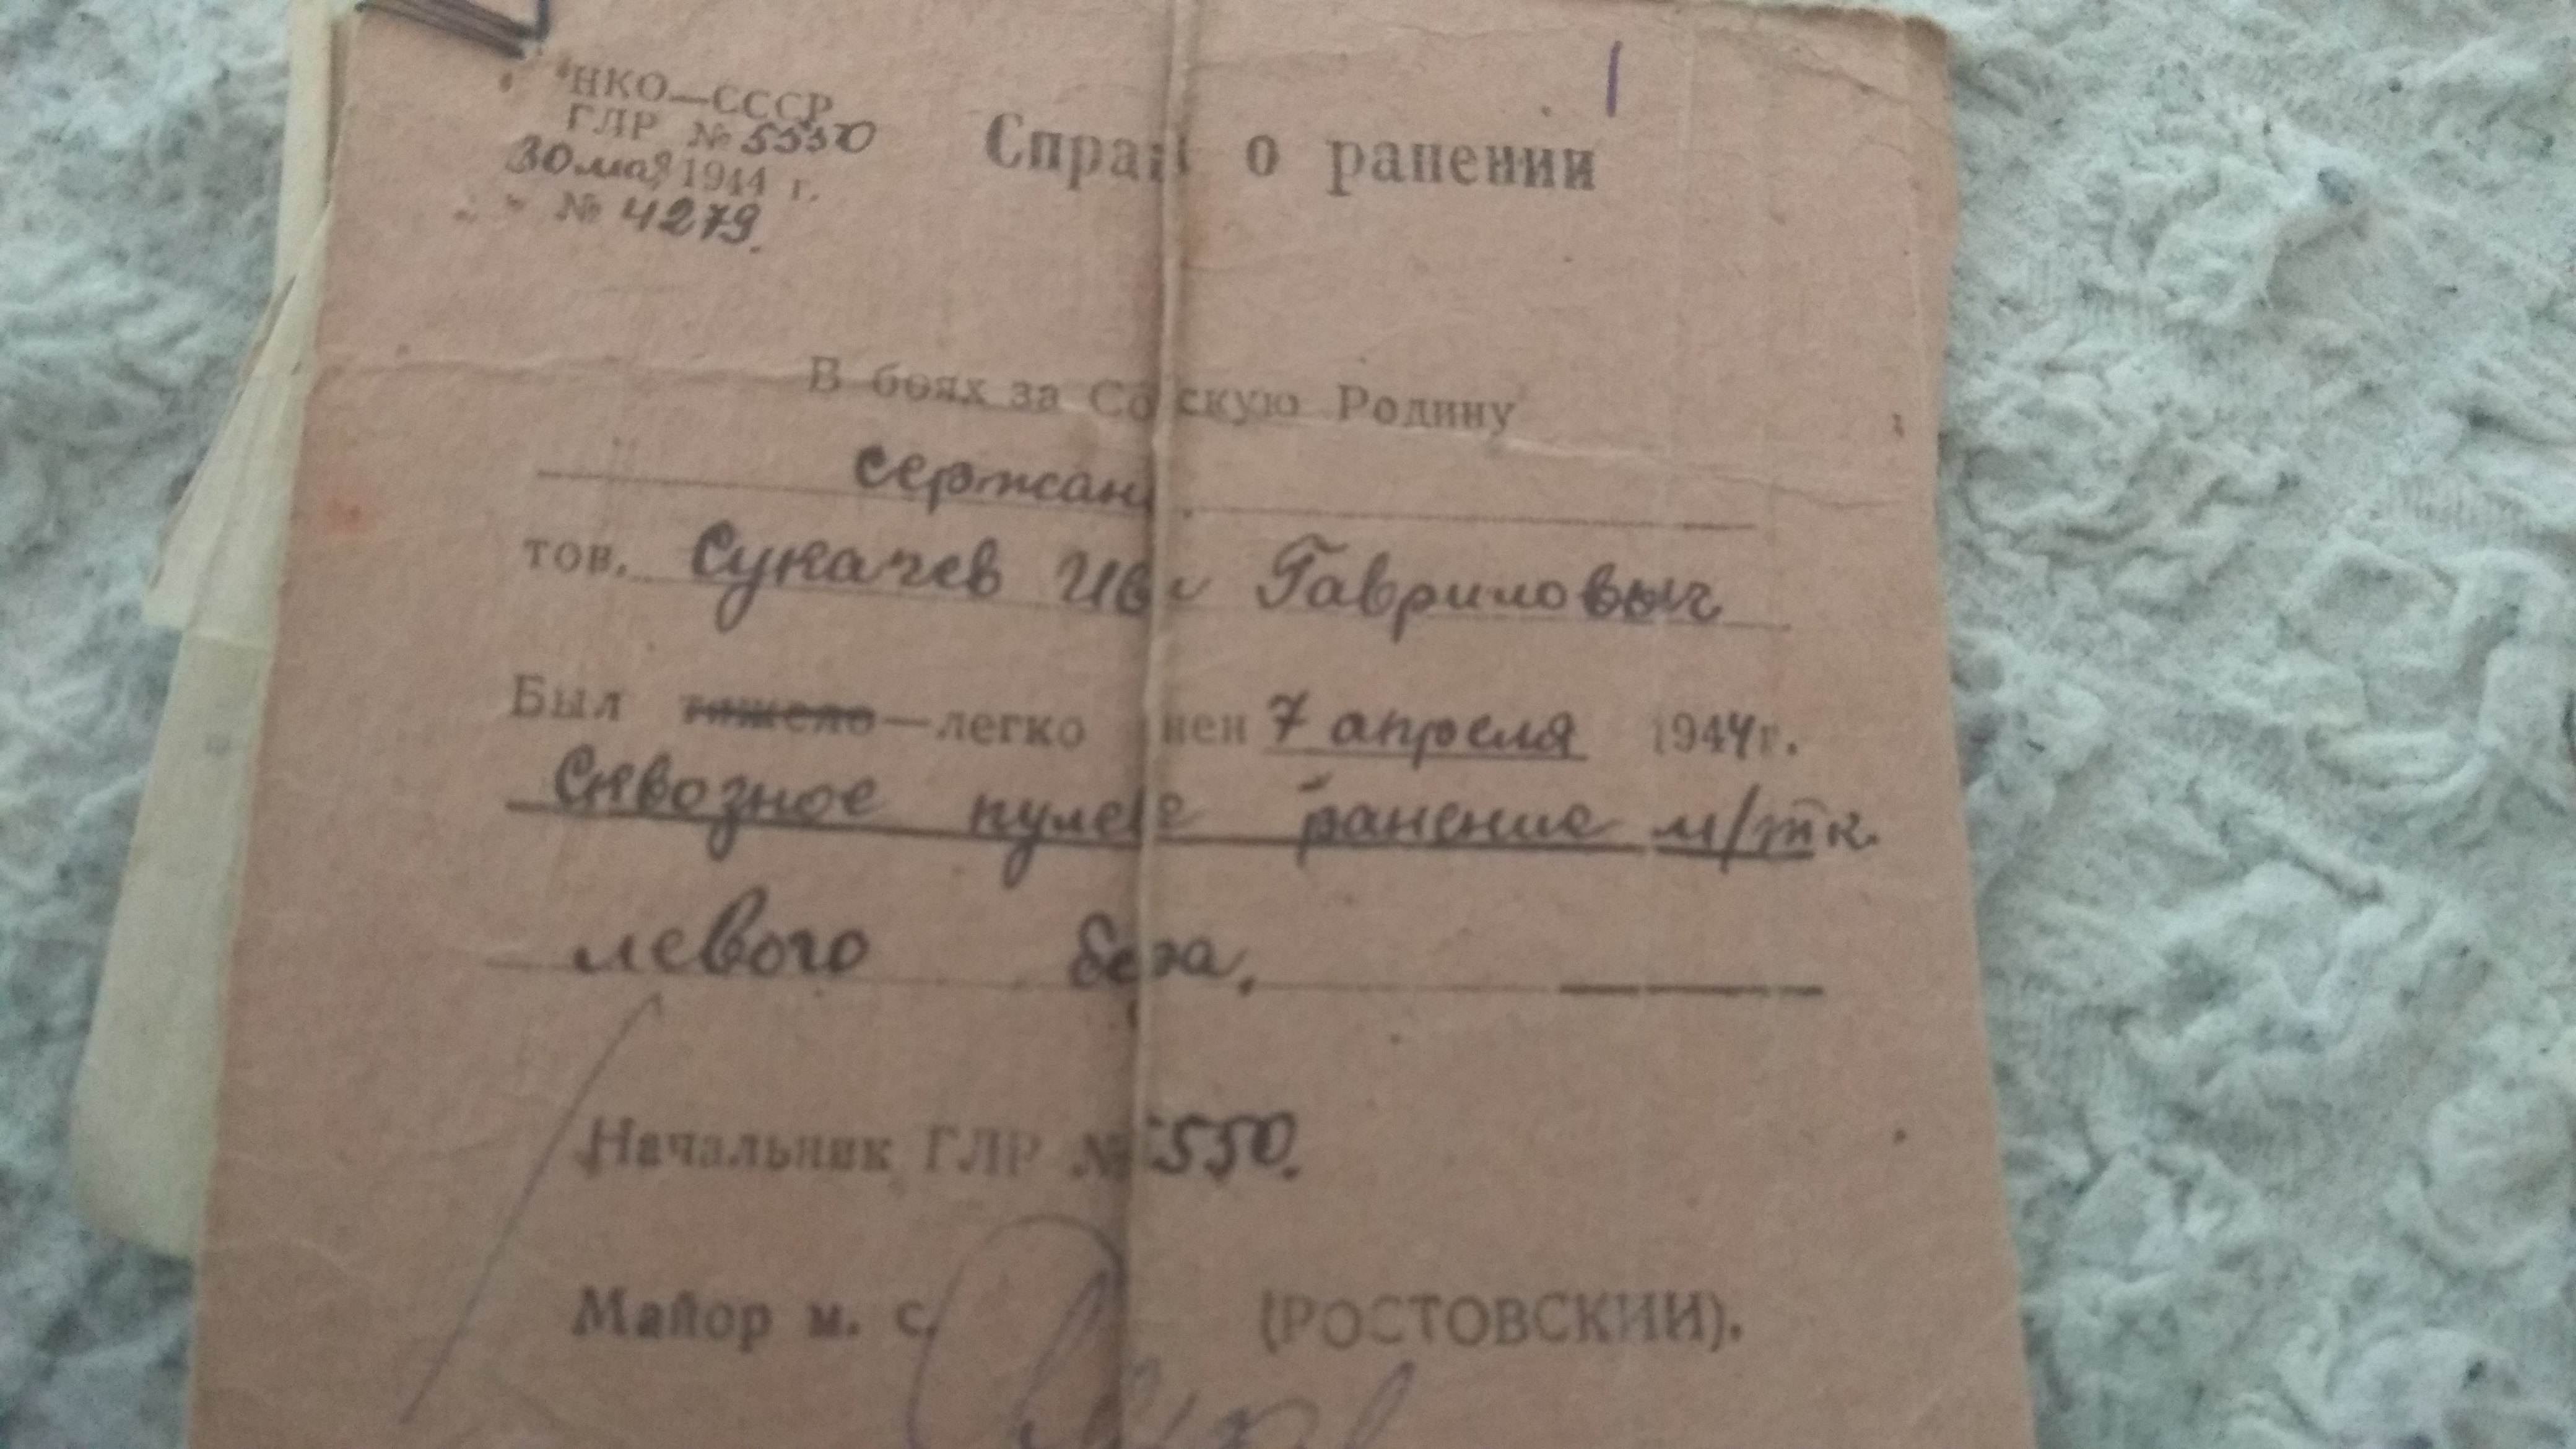 НКО—СССР
ГЛР № 5550
30 мая 1944 г.
№ 4279.
о ранении
В боях за Со скую Родину
сержан
тов. Сукачев Ив Гавриловыч
Был тяжело—легко нен 7 апреля 1944 г.
Сквозное пуле е ранение м/тк.
левого
Начальник ГЛР № 5550.
Майор м. с. (РОСТОВСКИЙ).